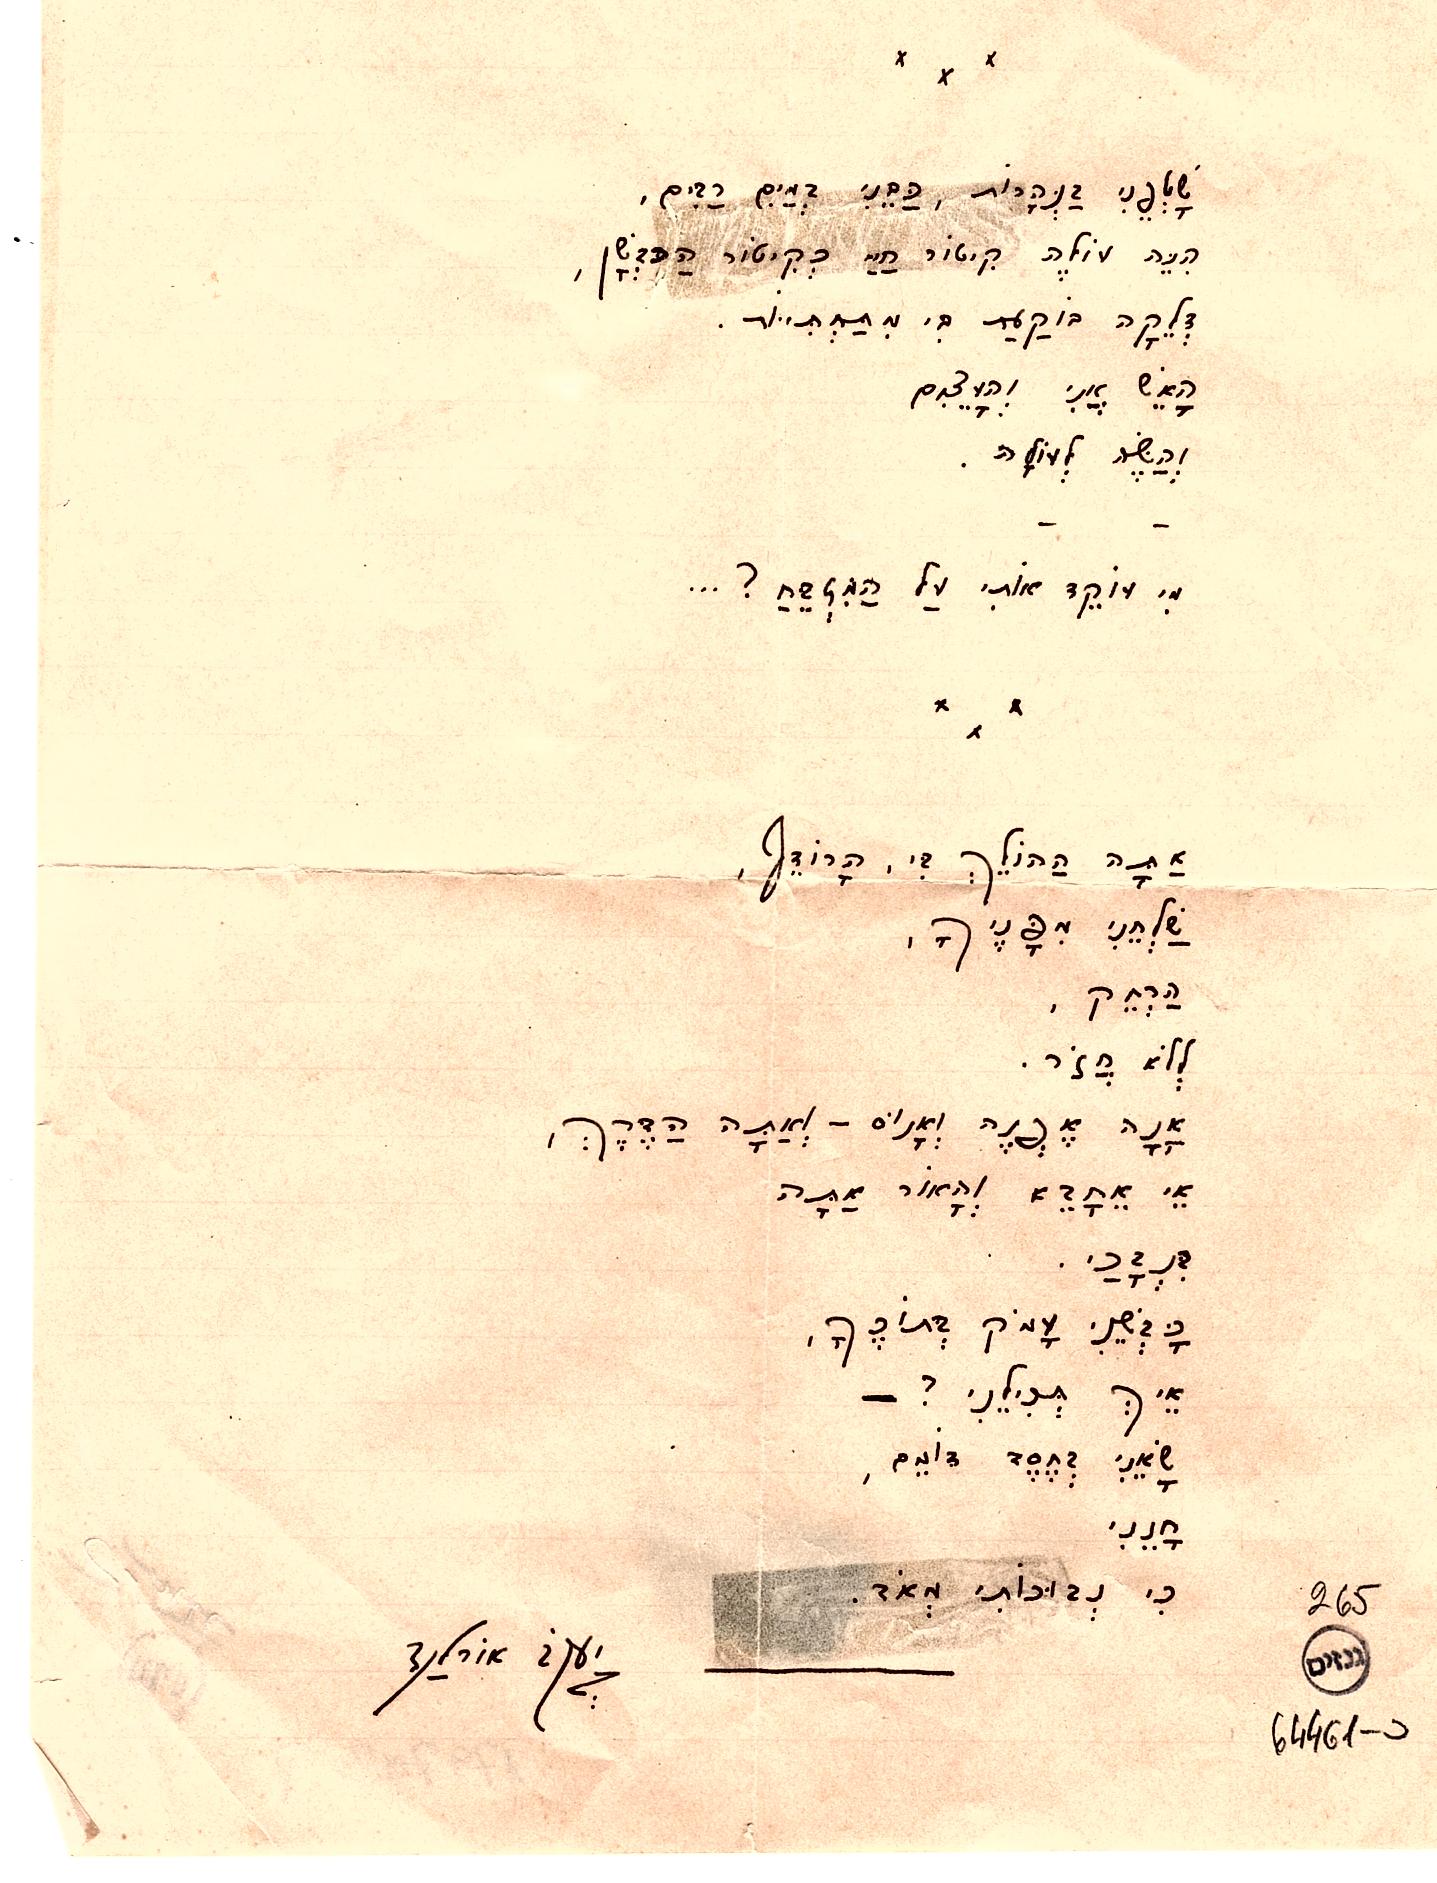 × × ×
שָׁטְפֵנִי בַּנְּהָרוֹת, הַבֵּנִי בְּמַיִם רַבִּים,
הִנֵּה עוֹלֶה קִיטוֹר חַי כְּקִיטוֹר הַכִּבְשָׁן,
דְּלֵקָה בּוֹקַעַת בִּי מִתַּחְתִּיּוֹת.
הָאֵשׁ אֲנִי וְהָעֵצִים
וְהַשֶּׂה לְעוֹלָה.
– –
מִי עוֹקֵד אוֹתִי עַל הַמִּטְבֵּחַ? ...
× × ×
אַתָּה הַהוֹלֵךְ בִּי, הָרוֹדֵף,
שַׁלְּחֵנִי מִפָּנֶיךָ,
הַרְחֵק,
לְלֹא חֲזֹר.
אָנָה אֶפְנֶה וְאָנוּס – וְאַתָּה הַדֶּרֶךְ,
אֵי אֵחָבֵא וְהָאוֹר אַתָּה
בִּנְבָכַי.
כָּבְשֵׁנִי עָמֹק בְּתוֹכֶךָ,
אֵיךְ תְּכִילֵנִי? –
שָׂאֵנִי בְּחֶסֶד דּוֹמֵם,
חָנֵנִי
כִּי נְבוּכוֹתִי מְאֹד.
יַעֲקֹב אוֹרלַנד
265
גנזים
כ-64461